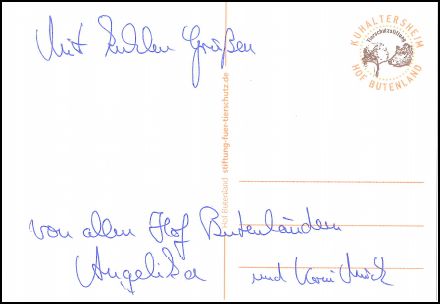 Mit Kuhlen Grüßen
KUHALTERSHEIM
Tierschutzstiftung
HOF BUTENLAND
Hof Butenland | stiftung-fuer-tierschutz.de
von allen Hof Butenländern
Angelika und Karin Mück